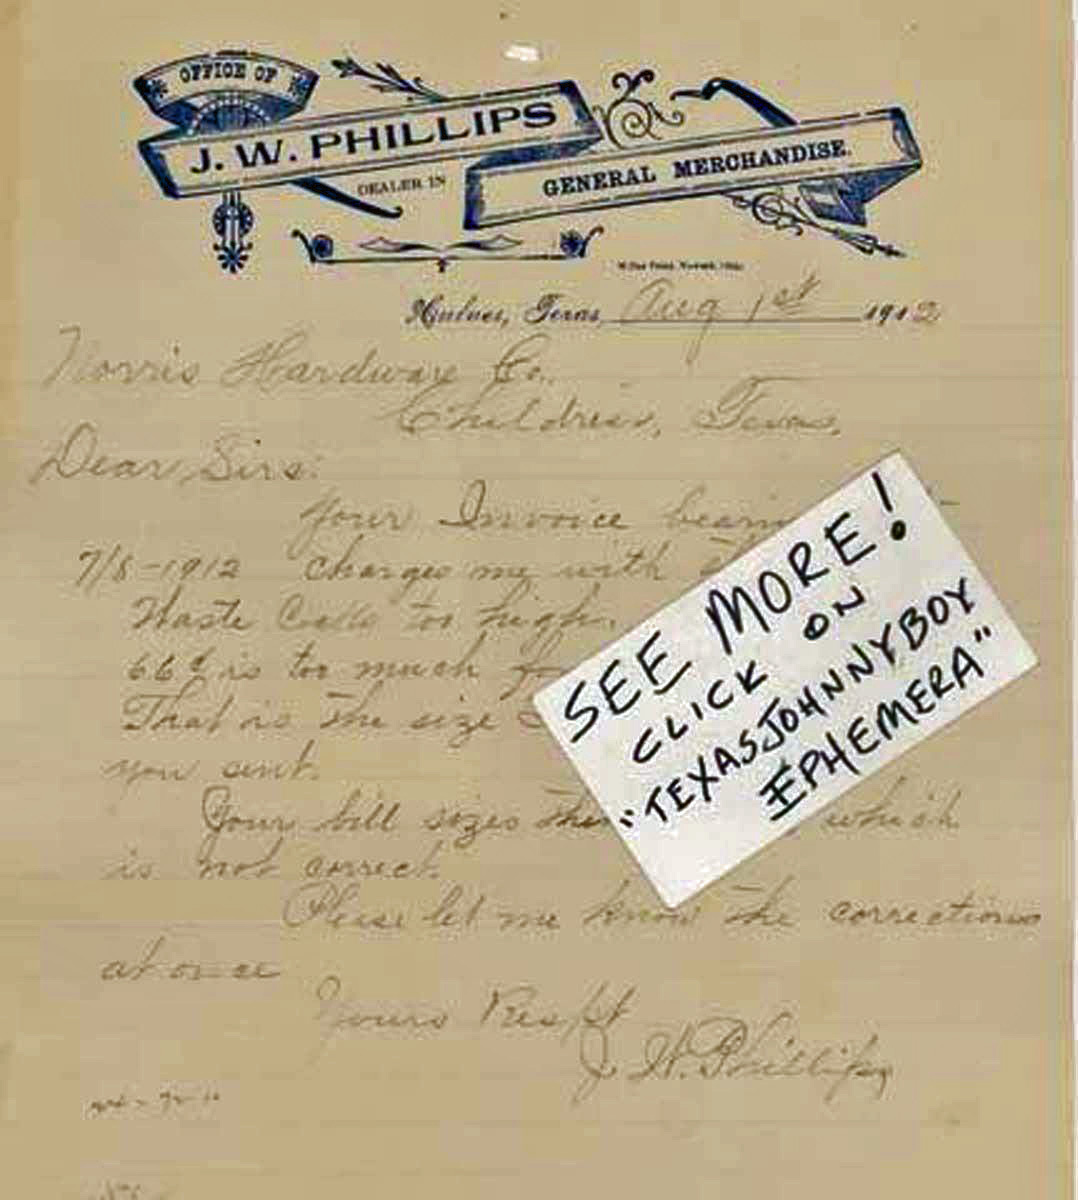 OFFICE OF
J. W. PHILLIPS
DEALER IN
GENERAL MERCHANDISE.
Hulver, Texas, Aug 1st 1912
Norris Hardware Co.
Childress, Texas,
Dear Sirs:
Your Invoice bearing
7/8-1912 charges me with
Waste too high.
66¢ is too much
That is the size
you sent.
Your bill sizes which
is not correct.
Please let me know the corrections
at once
Yours Respt
J. W. Phillips
SEE MORE!
CLICK ON
"TEXASJOHNNYBOY
EPHEMERA"